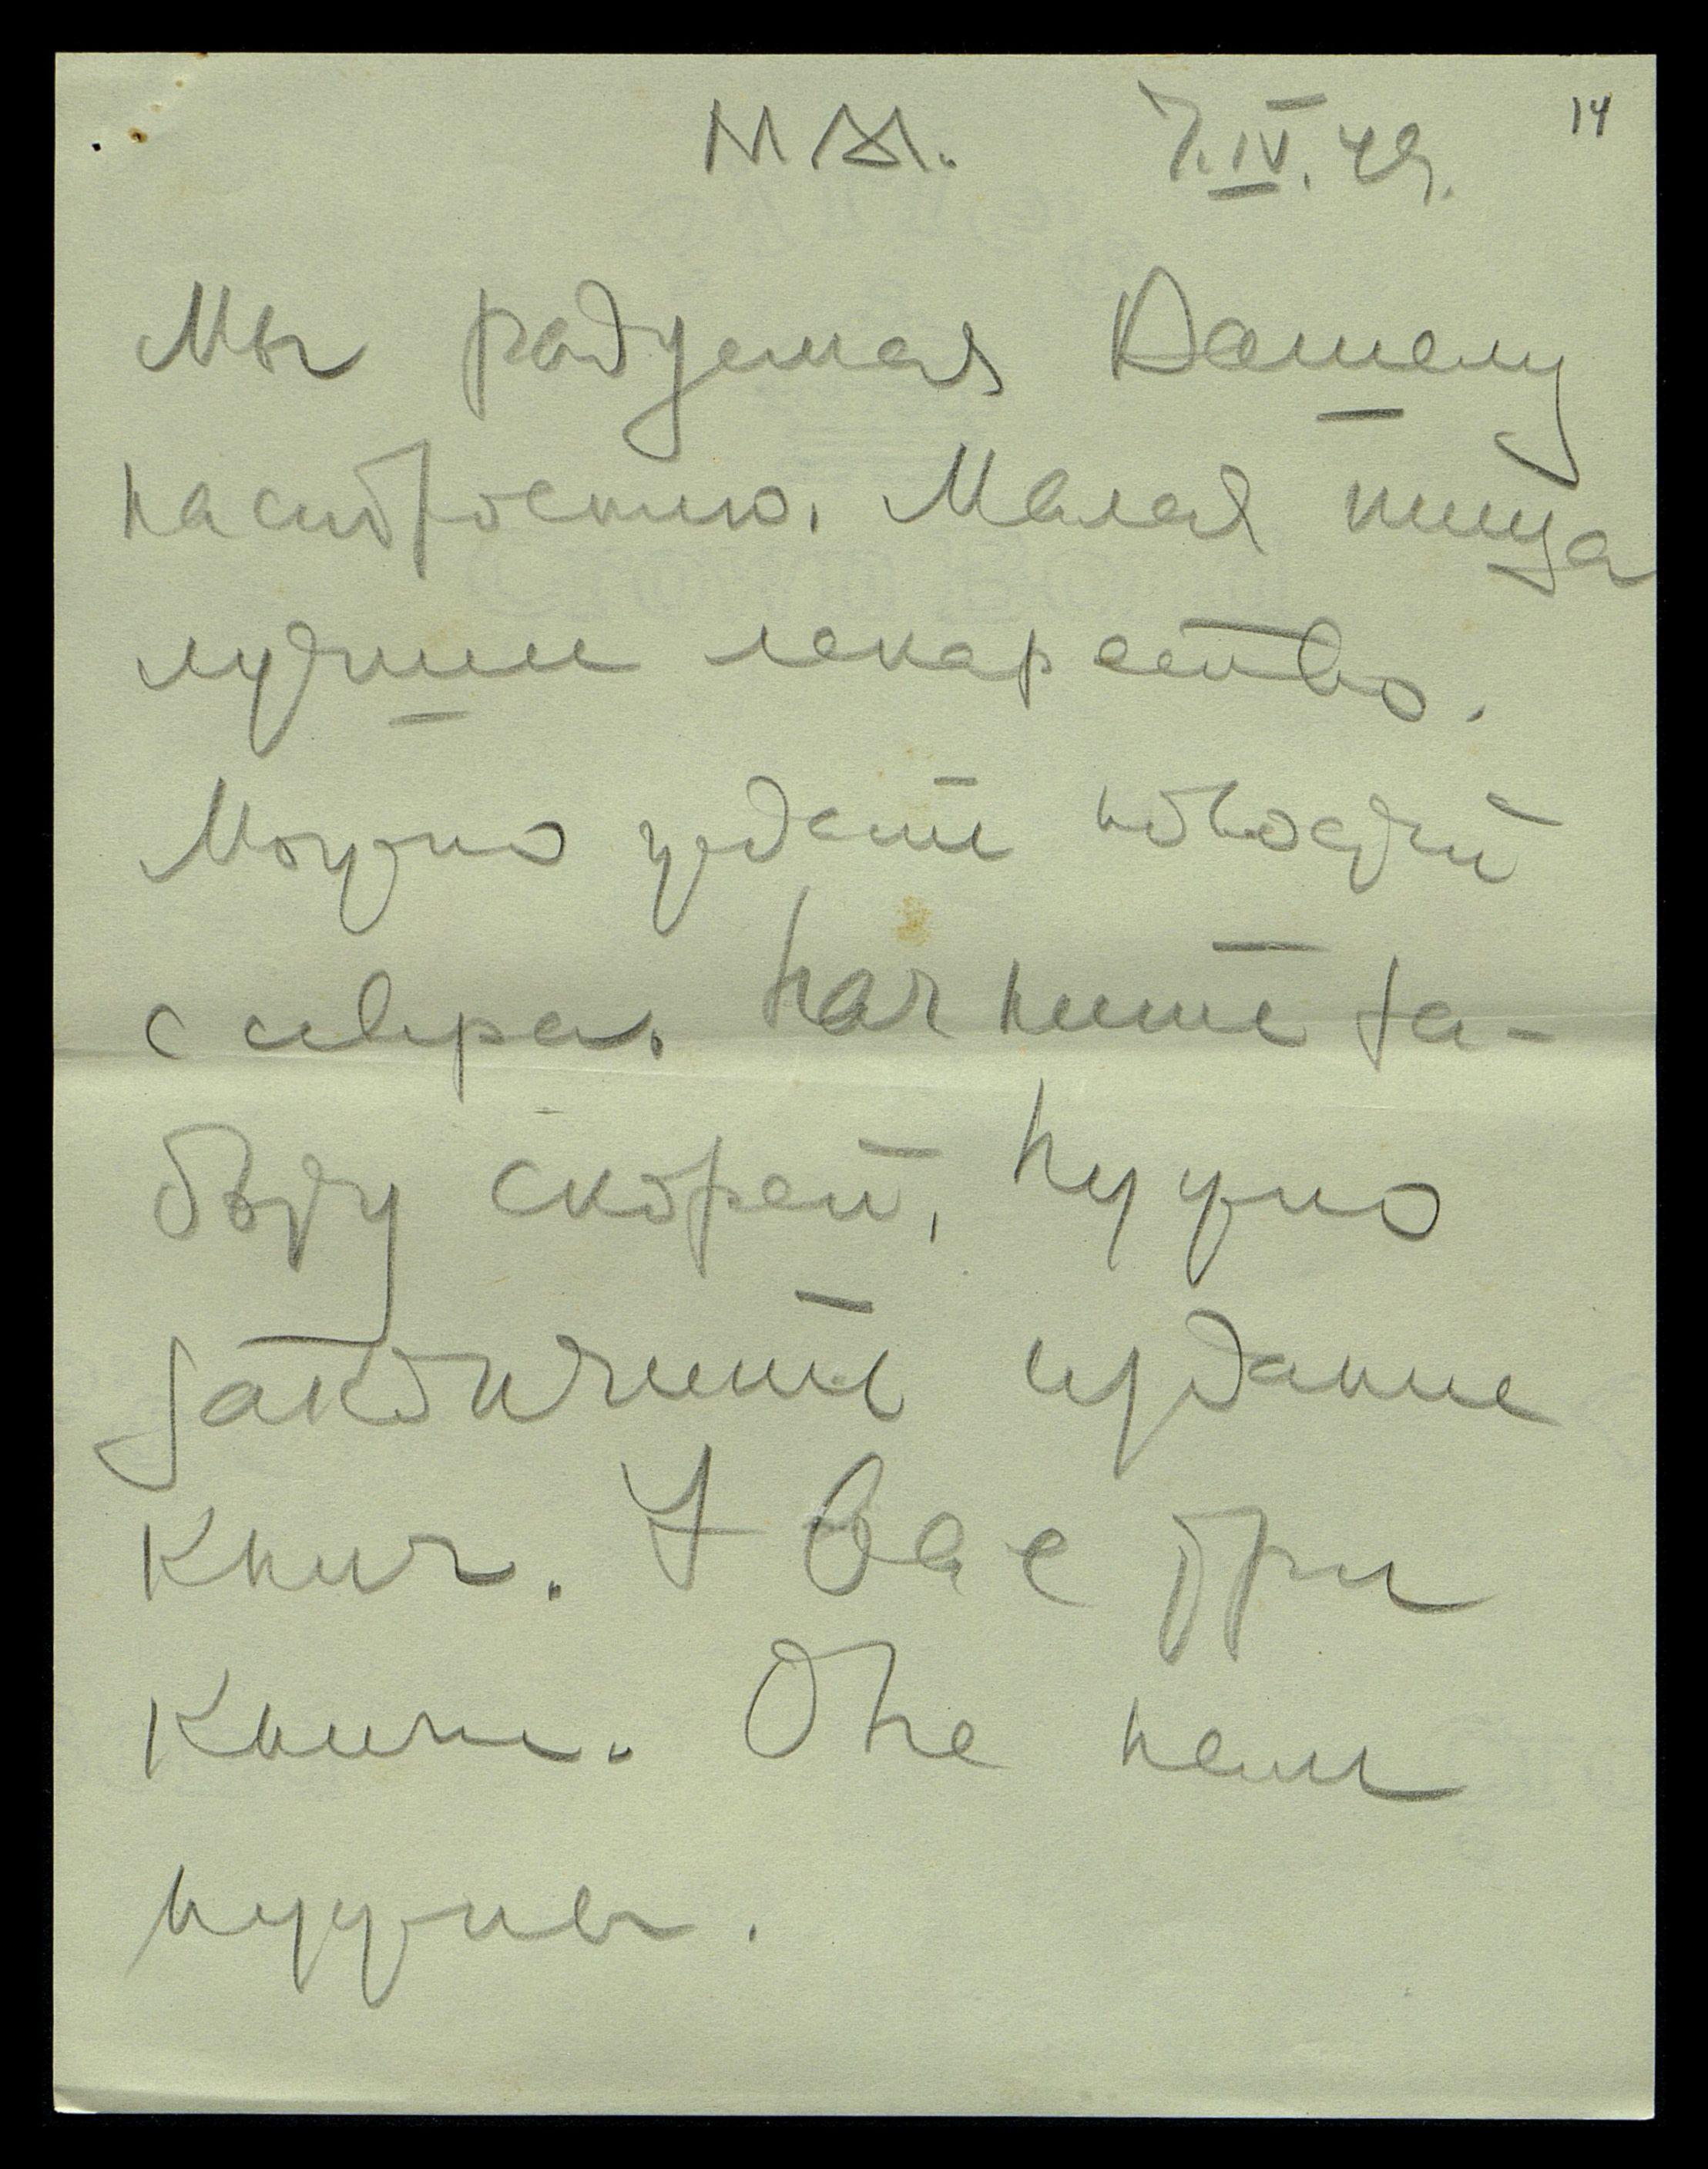 М.М. 7.IV.49. 14
Мы радуемся Вашему
настроению. Малая пища
лучшее лекарство.
Можно ждать новостей
с севера. Начните
быду скорей, Нужно
закончить издание
книг. У Вас три
книги. Они нам
нужны.